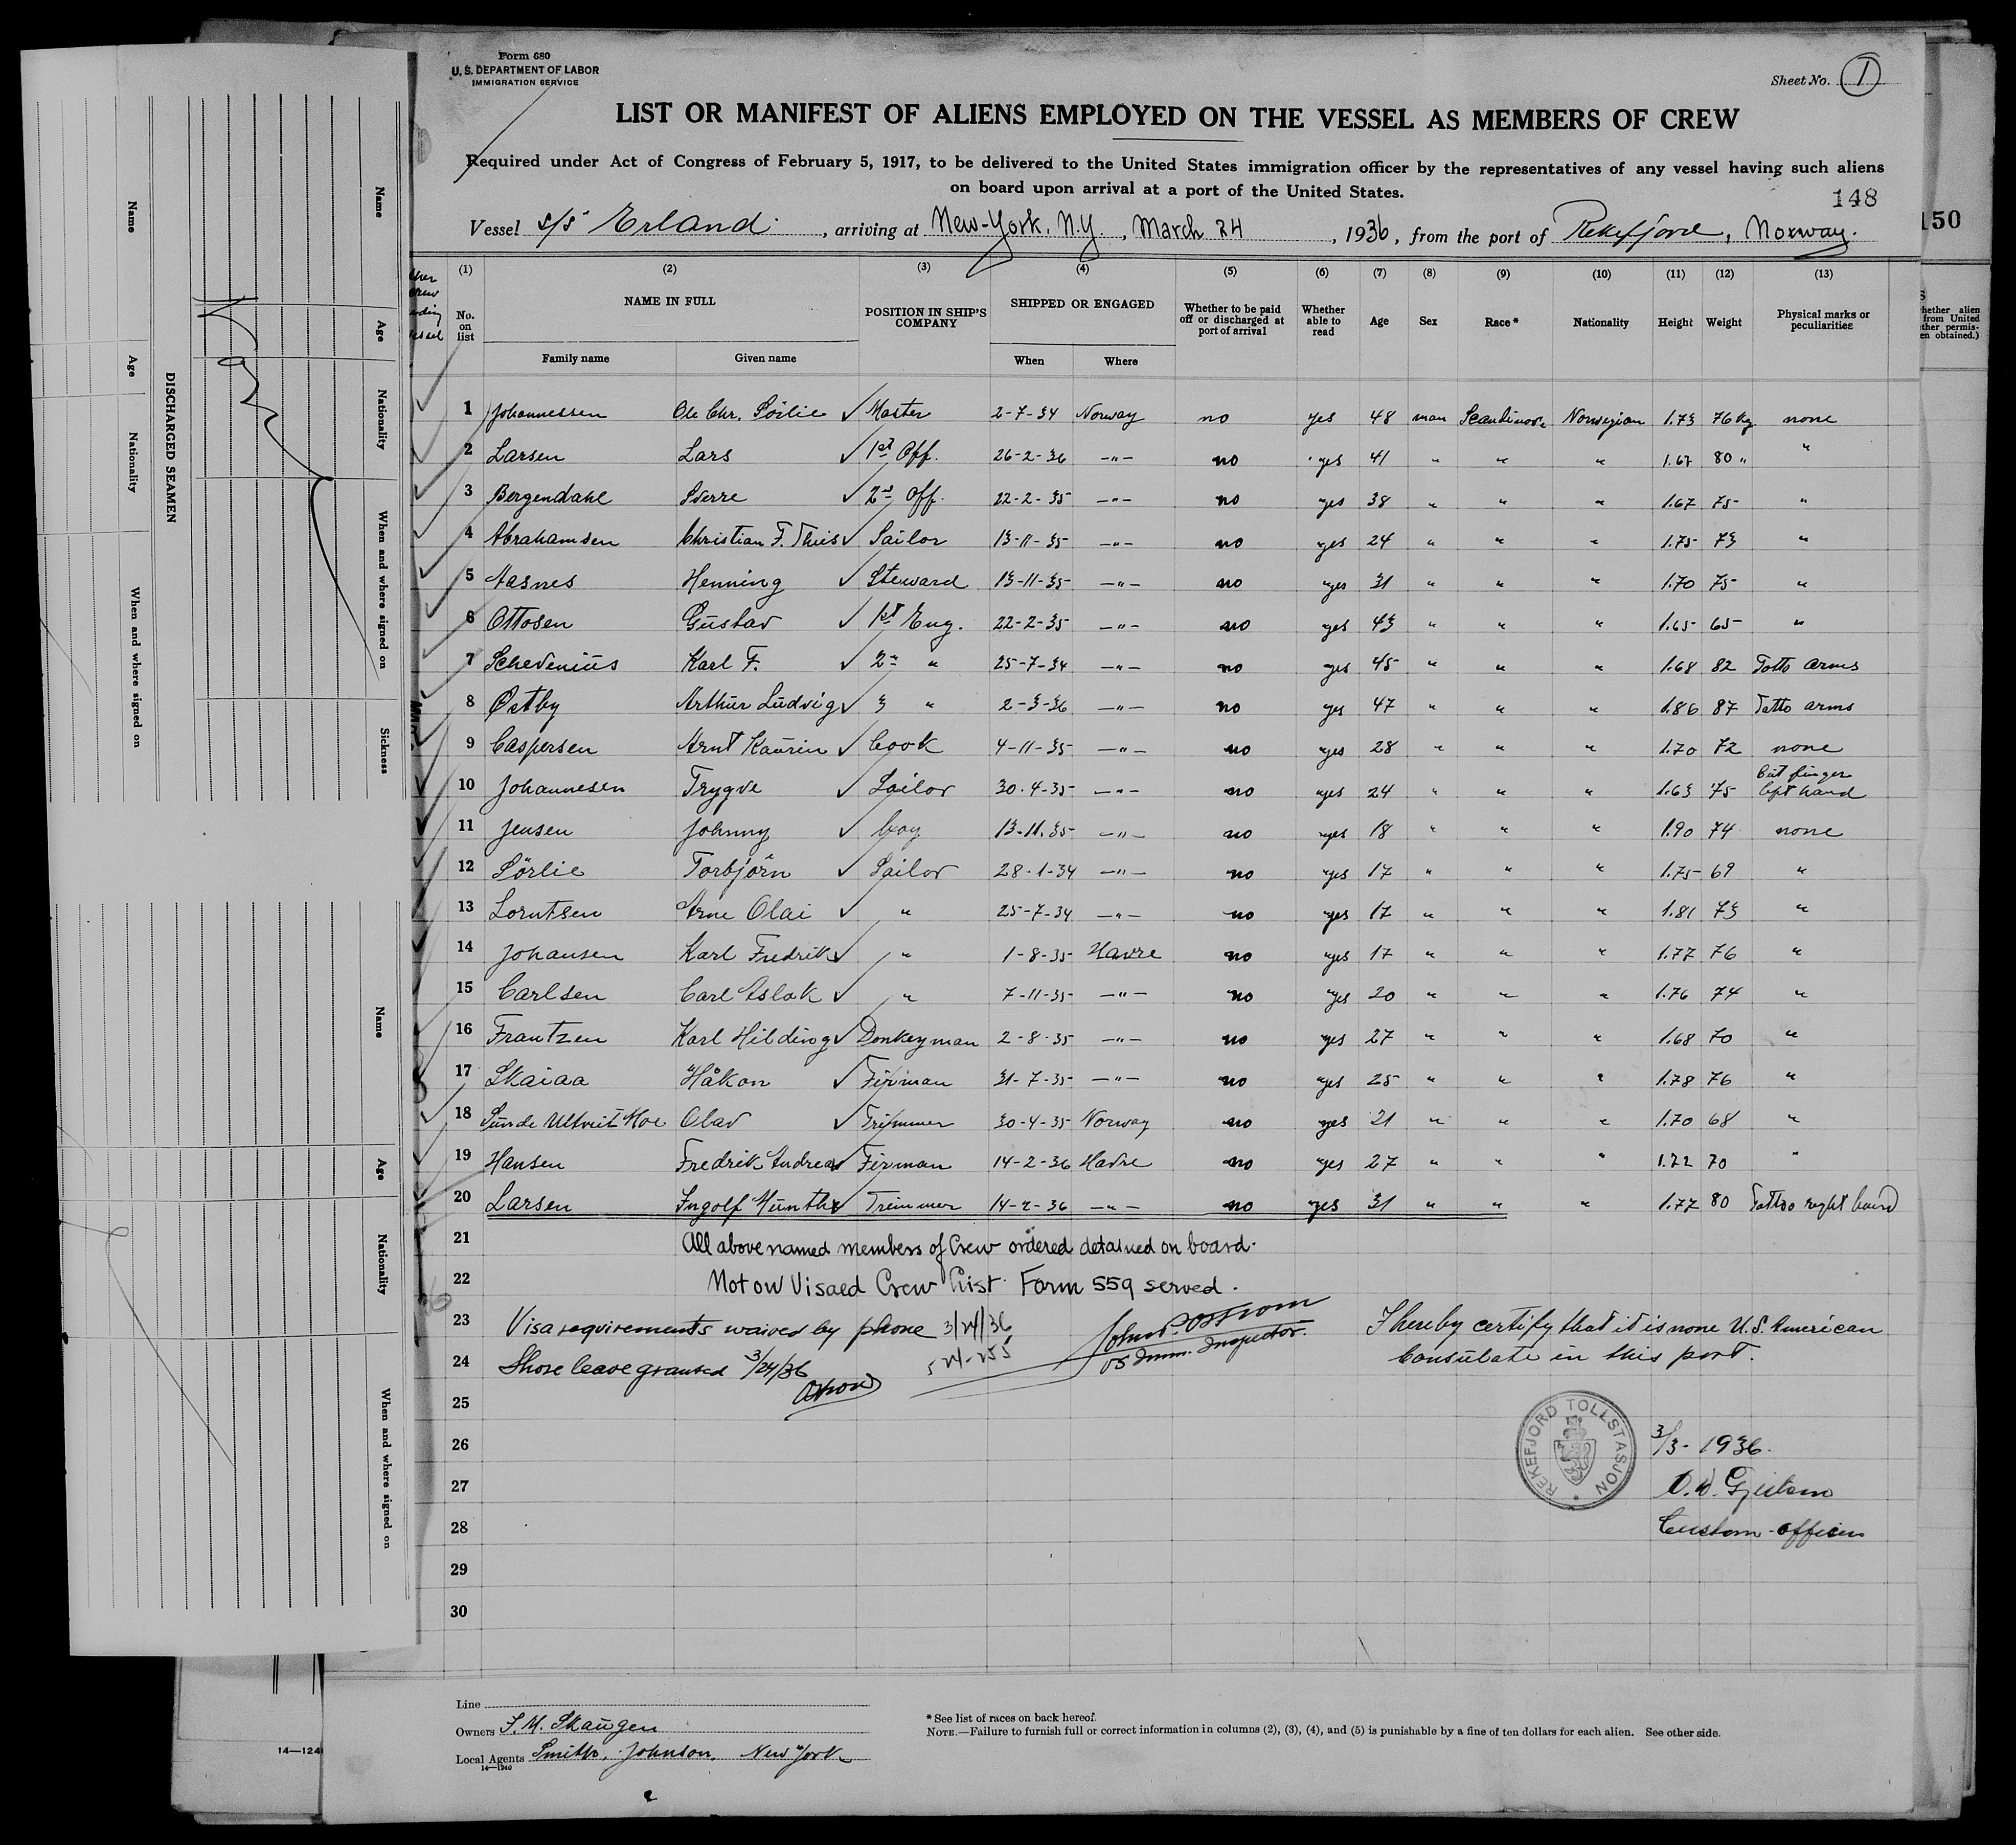 Form 680
U. S. DEPARTMENT OF LABOR
IMMIGRATION SERVICE
Sheet No. 1
LIST OR MANIFEST OF ALIENS EMPLOYED ON THE VESSEL AS MEMBERS OF CREW
Required under Act of Congress of February 5, 1917, to be delivered to the United States immigration officer by the representatives of any vessel having such aliens
on board upon arrival at a port of the United States.
148
150
Vessel s/s Erland, arriving at New-York. N.Y., March 24, 1936, from the port of Rekefjord, Norway.
(1) (2) (3) (4) (5) (6) (7) (8) (9) (10) (11) (12) (13)
No. on list NAME IN FULL Family name Given name POSITION IN SHIP'S COMPANY SHIPPED OR ENGAGED When Where Whether to be paid off or discharged at port of arrival Whether able to read Age Sex Race* Nationality Height Weight Physical marks or peculiarities
1 Johannessen Ole Chr. Sörlie ✓ Master 2-7-34 Norway no yes 48 man Scandinav. Norwegian 1.73 76 kg none
2 Larsen Lars ✓ 1st Off. 26-2-36 -"- no yes 41 " " " 1.67 80 " "
3 Bergendahl Sverre ✓ 2nd Off. 22-2-35 -"- no yes 38 " " " 1.67 75 "
4 Abrahamsen Christian F. Thiis ✓ Sailor 13-11-35 -"- no yes 24 " " " 1.75 73 "
5 Aasnes Henning ✓ Steward 13-11-35 -"- no yes 31 " " " 1.70 75 "
6 Ottosen Gustav ✓ 1st Eng. 22-2-35 -"- no yes 43 " " " 1.65 65 "
7 Schevenius Karl F. ✓ 2n " 25-7-34 -"- no yes 45 " " " 1.68 82 Totto arms
8 Østby Arthur Ludvig ✓ 3 " 2-3-36 -"- no yes 47 " " " 1.86 87 Tatto arms
9 Caspersen Arnt Kaurin ✓ Cook 4-11-35 -"- no yes 28 " " " 1.70 72 none
10 Johannesen Trygve ✓ Sailor 30-4-35 -"- no yes 24 " " " 1.63 75 Cut finger left hand
11 Jensen Johnny ✓ boy 13-11.35 -"- no yes 18 " " " 1.90 74 none
12 Sörlie Torbjörn ✓ Sailor 28-1-34 -"- no yes 17 " " " 1.75 69 "
13 Lorntsen Arne Olai ✓ " 25-7-34 -"- no yes 17 " " " 1.81 73 "
14 Johansen Karl Fredrik ✓ " 1-8-35 Havre no yes 17 " " " 1.77 76 "
15 Carlsen Carl Aslak ✓ " 7-11-35 -"- no yes 20 " " " 1.76 74 "
16 Frantzen Karl Hilding ✓ Donkeyman 2-8-35 -"- no yes 27 " " " 1.68 70 "
17 Skaiaa Håkon ✓ Firman 31-7-35 -"- no yes 25 " " " 1.78 76 "
18 Sunde Ultveit Moe Olav ✓ Trimmer 30-4-35 Norway no yes 21 " " " 1.70 68 "
19 Hansen Fredrik Andreas ✓ Firman 14-2-36 Havre no yes 27 " " " 1.72 70 "
20 Larsen Ingolf Münthe ✓ Trimmer 14-2-36 -"- no yes 31 " " " 1.77 80 Tattoo right hand
21 All above named members of Crew ordered detained on board.
22 Not on Visaed Crew List. Form 559 served.
23 Visa requirements waived by phone 3/24/36
24 Shore leave granted 3/24/36
US Imm. Inspector.
I hereby certify that it is none U.S. American
Consulate in this port.
25
26
27
28
29
30
REKEFJORD TOLLSTASJON
3/3-1936.
Custom-officer
Line
Owners I. M. Skaugen
Local Agents Smith, Johnson, New York
14—1240
* See list of races on back hereof.
NOTE.—Failure to furnish full or correct information in columns (2), (3), (4), and (5) is punishable by a fine of ten dollars for each alien. See other side.
DISCHARGED SEAMEN
Name Age Nationality When and where signed on
Name Age Nationality When and where signed on Sickness
Name Age Nationality When and where signed on